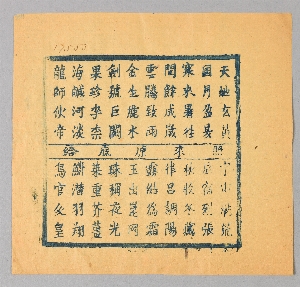 天地玄黃
日月盈昃
寒來暑往
閏餘成歲
雲騰致雨
金生麗水
劍號巨闕
果珍李柰
海鹹河淡
龍師伙帝
照來原底給
宇宙洪荒
辰宿列張
秋收冬藏
呂調陽
露結為霜
玉出崑岡
珠稱夜光
菜重芥薑
鱗潛羽翔
鳥官人皇